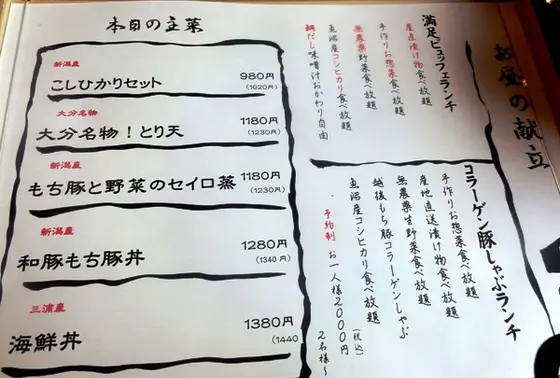 お昼の献立
満足ビュッフェランチ
産直漬け物食べ放題
手作りお惣菜食べ放題
無農薬野菜食べ放題
魚沼産コシヒカリ食べ放題
鯛だし味噌汁おかわり自由
コラーゲン豚しゃぶランチ
手作りお惣菜食べ放題
産地直送漬け物食べ放題
無農薬生野菜食べ放題
越後もち豚コラーゲンしゃぶ
魚沼産コシヒカリ食べ放題
・予約制 お一人様2000円(税込) 2名様~
本日の主菜
新潟産
こしひかりセット 980円
(1020円)
大分名物
大分名物!とり天 1180円
(1230円)
新潟産
もち豚と野菜のセイロ蒸 1180円
(1230円)
新潟産
和豚もち豚丼 1280円
(1340円)
三浦産
海鮮丼 1380円
(1440